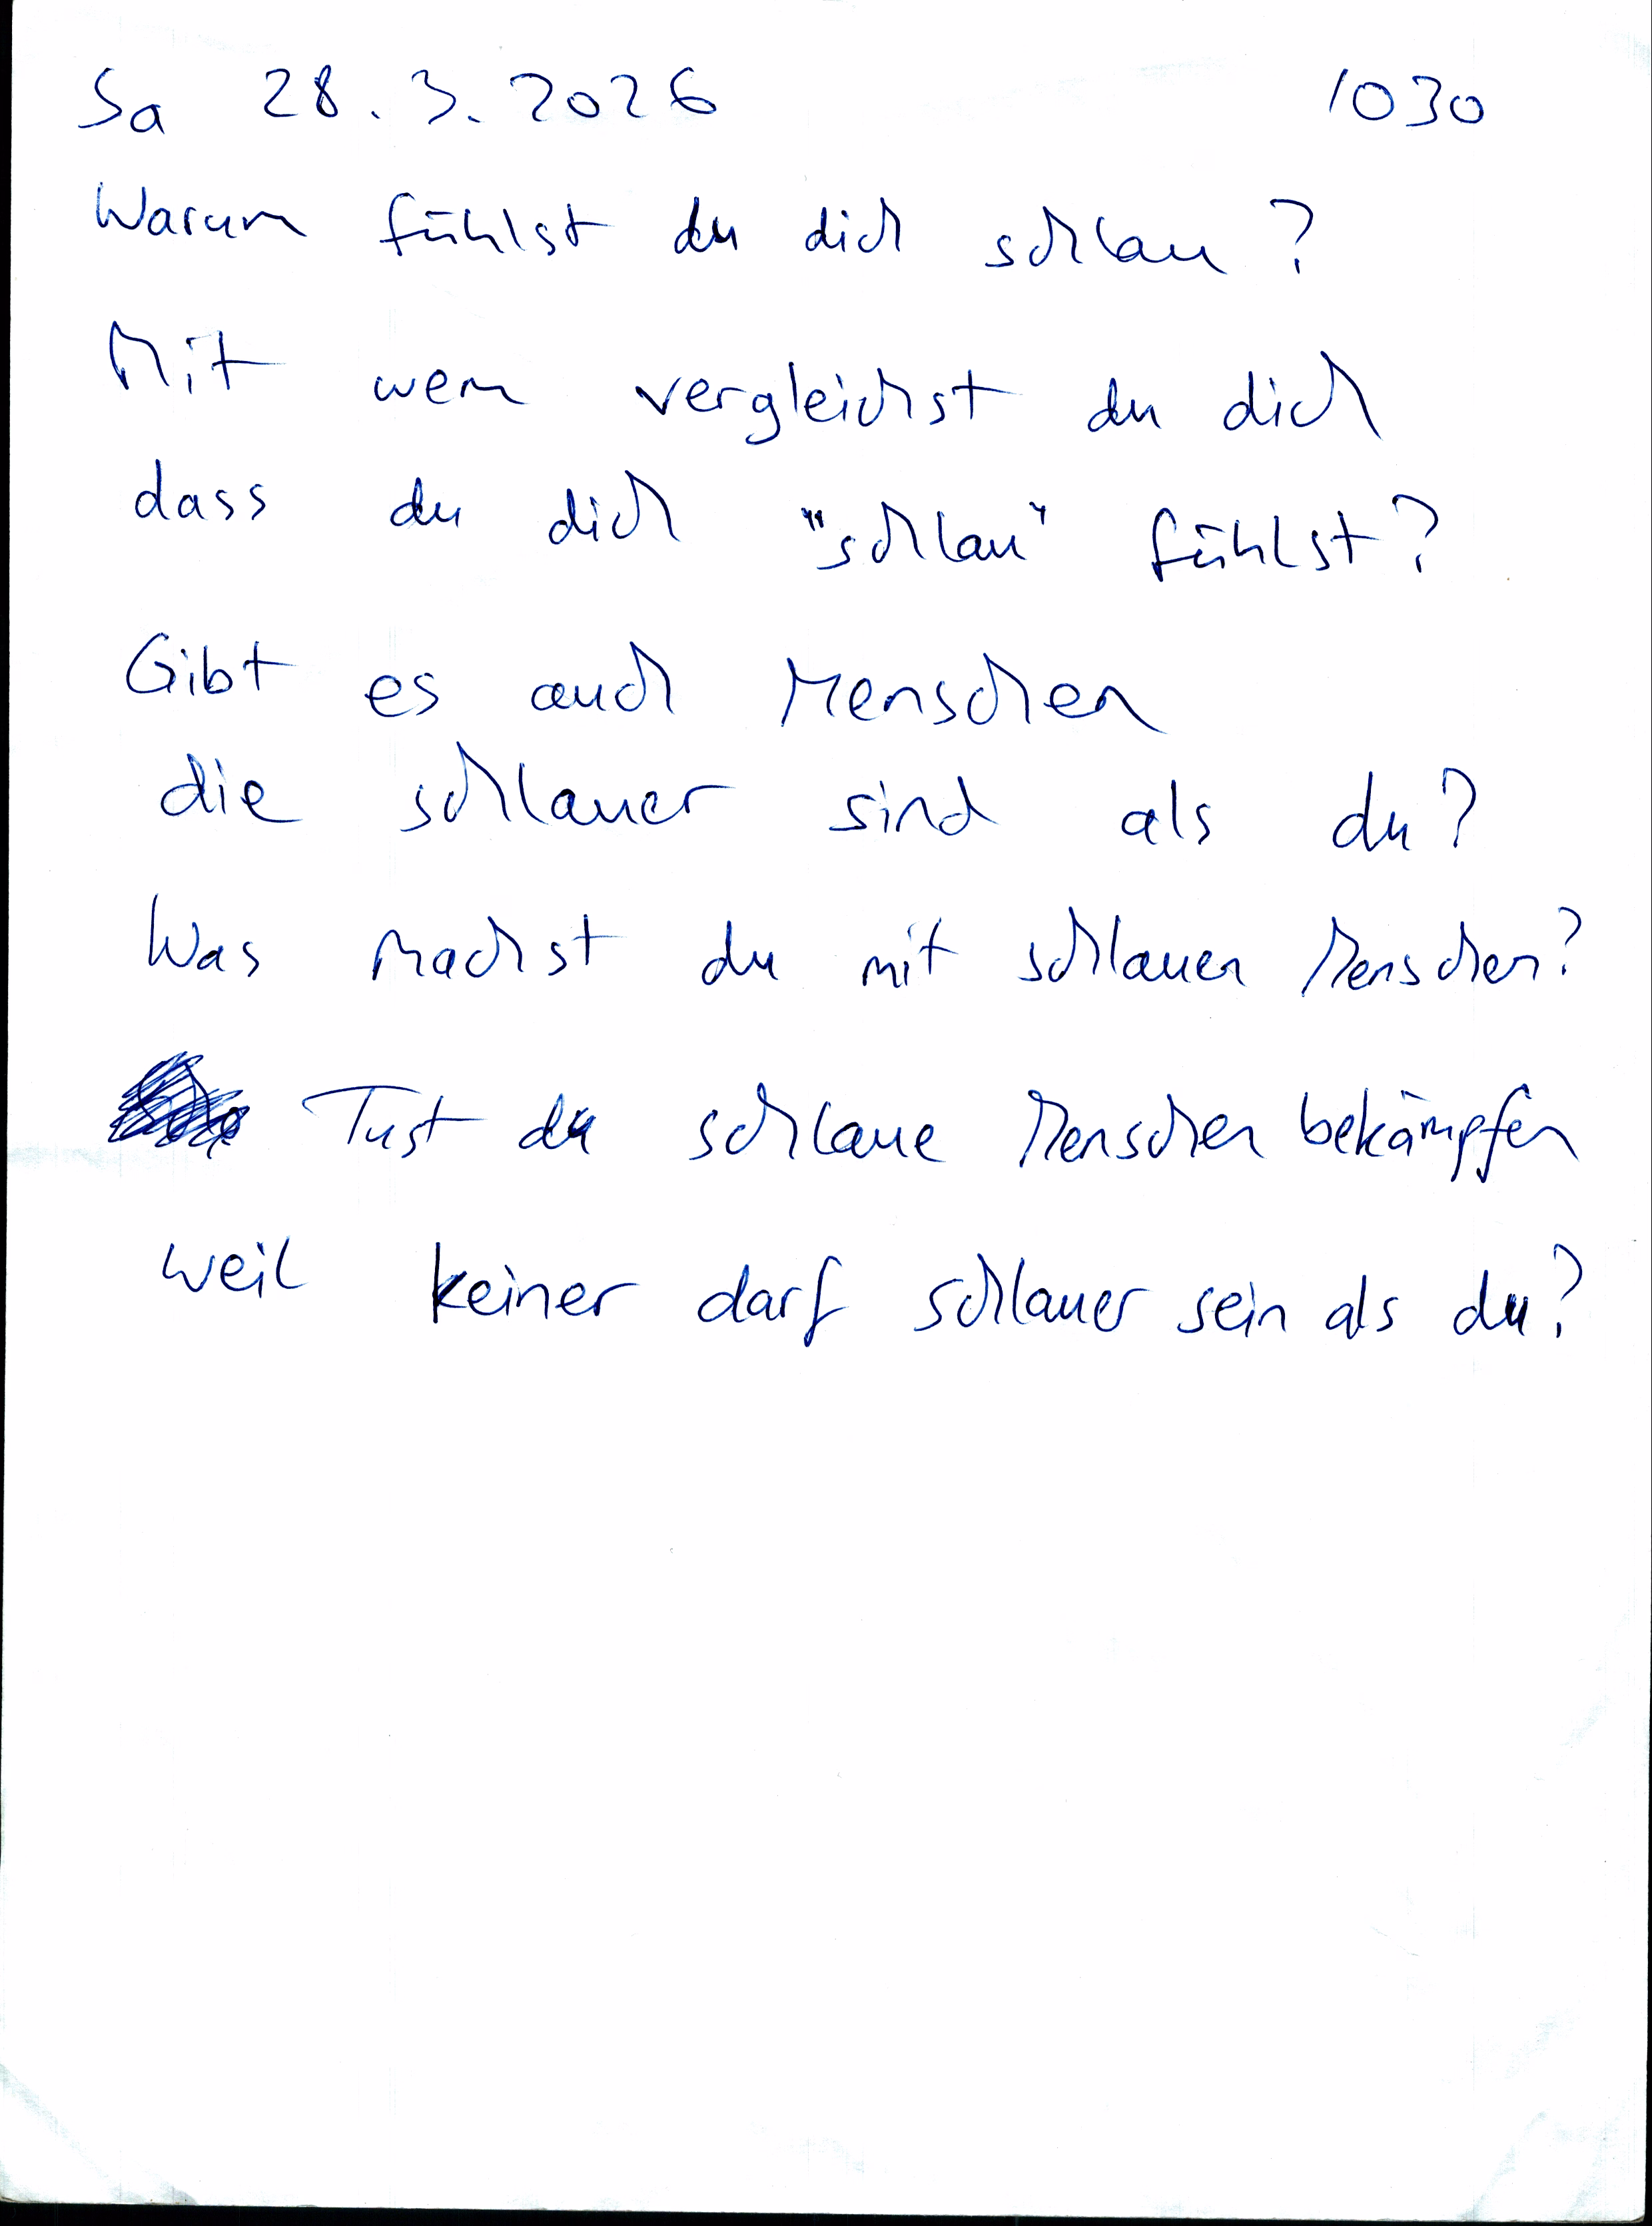 Sa 28.3.2026 1030
Warum fühlst du dich schlau?
Mit wem vergleichst du dich
dass du dich "schlau" fühlst?
Gibt es auch Menschen
die schlauer sind als du?
Was machst du mit schlauen Menschen?
Tust du schlaue Menschen bekämpfen
weil keiner darf schlauer sein als du?